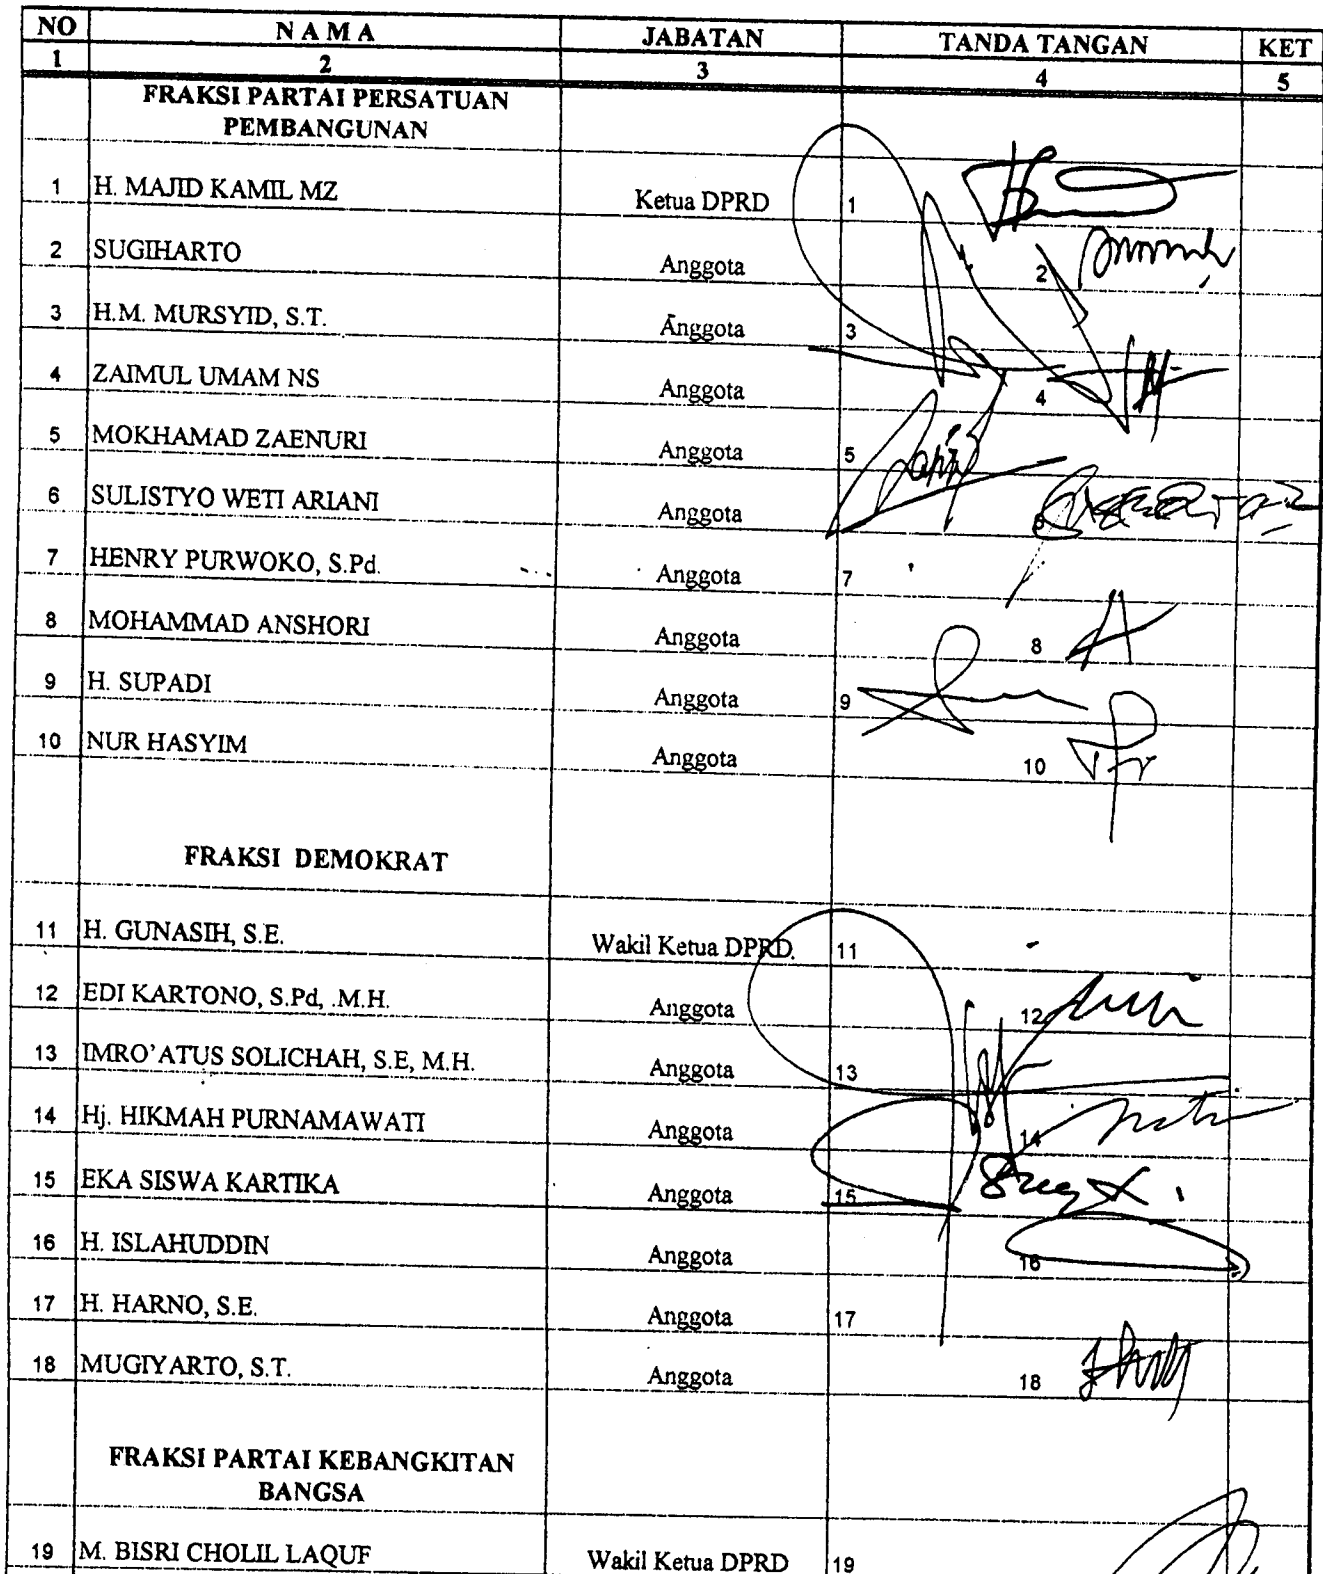 NO NAMA JABATAN TANDA TANGAN KET
1 2 3 4 5
FRAKSI PARTAI PERSATUAN
PEMBANGUNAN
1 H. MAJID KAMIL MZ Ketua DPRD 1
2 SUGIHARTO Anggota 2
3 H.M. MURSYID, S.T. Anggota 3
4 ZAIMUL UMAM NS Anggota 4
5 MOKHAMAD ZAENURI Anggota 5
6 SULISTYO WETI ARIANI Anggota 6
7 HENRY PURWOKO, S.Pd. Anggota 7
8 MOHAMMAD ANSHORI Anggota 8
9 H. SUPADI Anggota 9
10 NUR HASYIM Anggota 10
FRAKSI DEMOKRAT
11 H. GUNASIH, S.E. Wakil Ketua DPRD. 11
12 EDI KARTONO, S.Pd, .M.H. Anggota 12
13 IMRO'ATUS SOLICHAH, S.E, M.H. Anggota 13
14 Hj. HIKMAH PURNAMAWATI Anggota 14
15 EKA SISWA KARTIKA Anggota 15
16 H. ISLAHUDDIN Anggota 16
17 H. HARNO, S.E. Anggota 17
18 MUGIYARTO, S.T. Anggota 18
FRAKSI PARTAI KEBANGKITAN
BANGSA
19 M. BISRI CHOLIL LAQUF Wakil Ketua DPRD 19